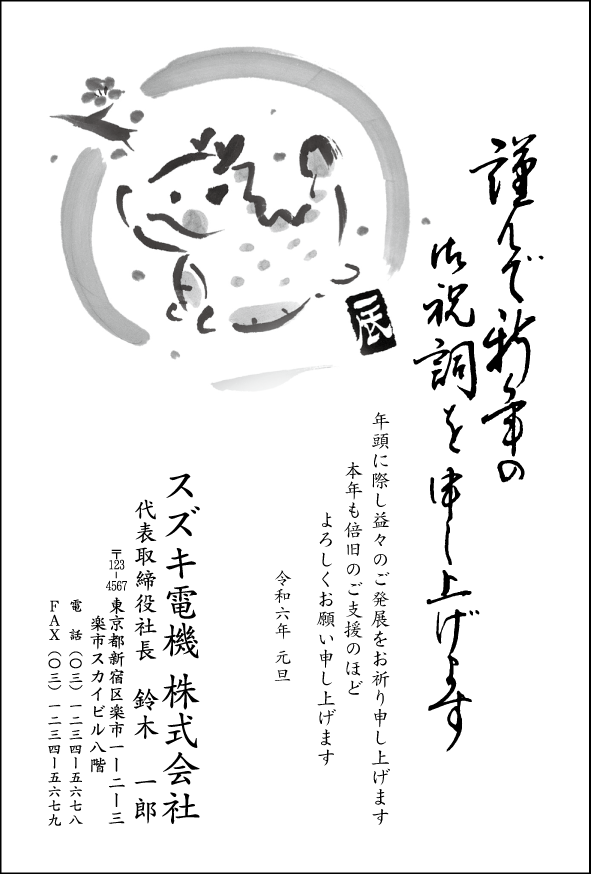 謹んで新年の
御祝詞を申し上げます
年頭に際し益々のご発展をお祈り申し上げます
本年も倍旧のご支援のほど
よろしくお願い申し上げます
令和六年 元旦
スズキ電機 株式会社
代表取締役社長 鈴木 一郎
〒123-4567 東京都新宿区楽市一ー二ー三
楽市スカイビル八階
電 話 (〇三) 一二三四ー五六七八
FAX (〇三) 一二三四ー五六七九
辰